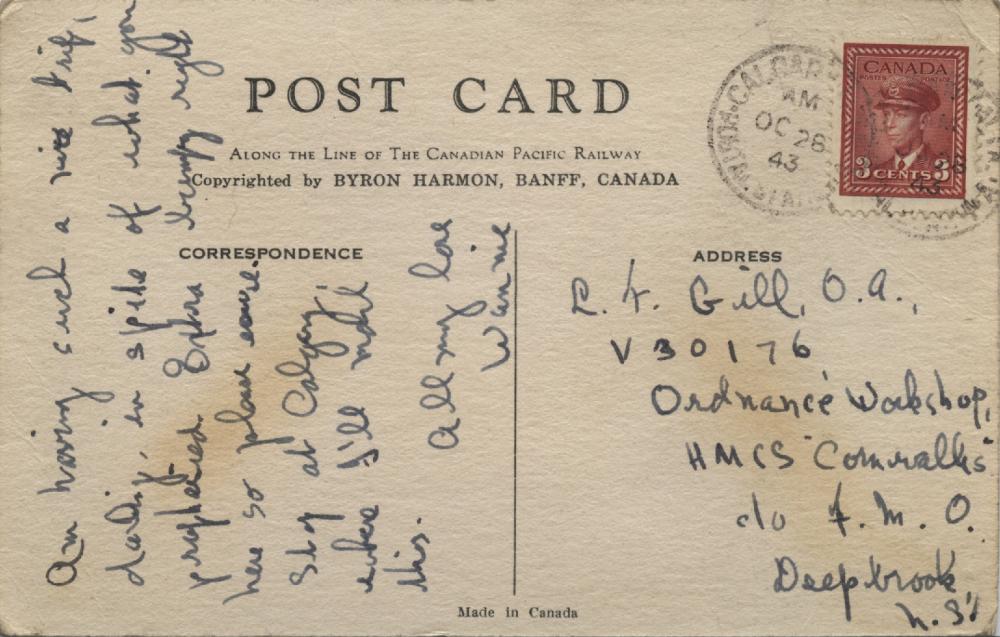 POST CARD
ALONG THE LINE OF THE CANADIAN PACIFIC RAILWAY
Copyrighted by BYRON HARMON, BANFF, CANADA
CORRESPONDENCE
Am having such a nice trip,
darling, in spite of what you
prophesied. Extra bumpy right
here so please excuse.
Stop at Calgary,
where I'll mail
this.
All my love
Winnie
ADDRESS
L. F. Gill, O.A.,
V30176
Ordnance Workshop,
HMCS "Cornwallis"
c/o F. M. O.
Deepbrook,
N.S.
CALGARY
AM
OC 26
43
CANADA
POSTES POSTAGE
3 CENTS 3
43
Made in Canada